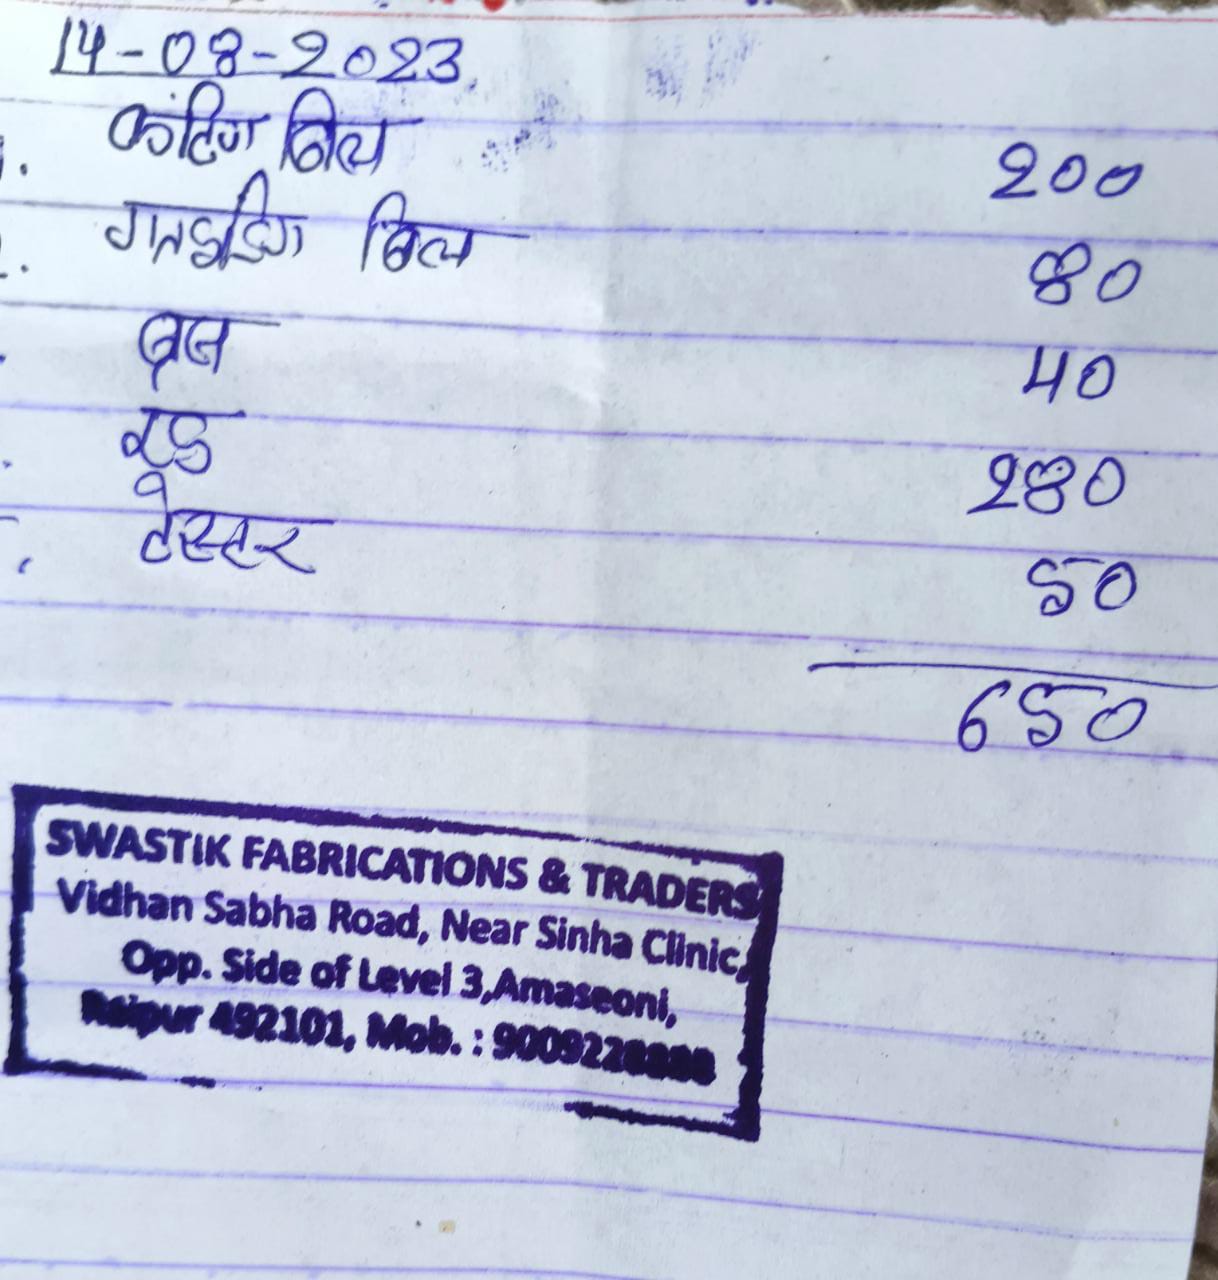 14-08-2023
कटिंग बिल 200
गाइडिंग बिल 80
ब्रुस 40
रड 280
टेस्टर 50
650
SWASTIK FABRICATIONS & TRADERS
Vidhan Sabha Road, Near Sinha Clinic,
Opp. Side of Level 3,Amaseoni,
Raipur 492101, Mob. :